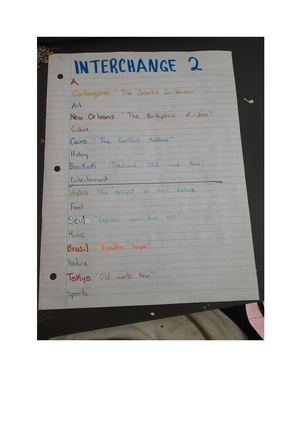 INTERCHANGE 2
A.
Cartagena "The Colorful Caribbean"
Art
New Orleans "The Birthplace of Jazz"
Culture
Cairo "The Earth's Mother"
History
Bankok "Thailand Old and New"
Entertainment
Italia The delight of
Food
Seul "Express your
Music
Brasil
Nature
Tokyo "Old meets New"
Sports